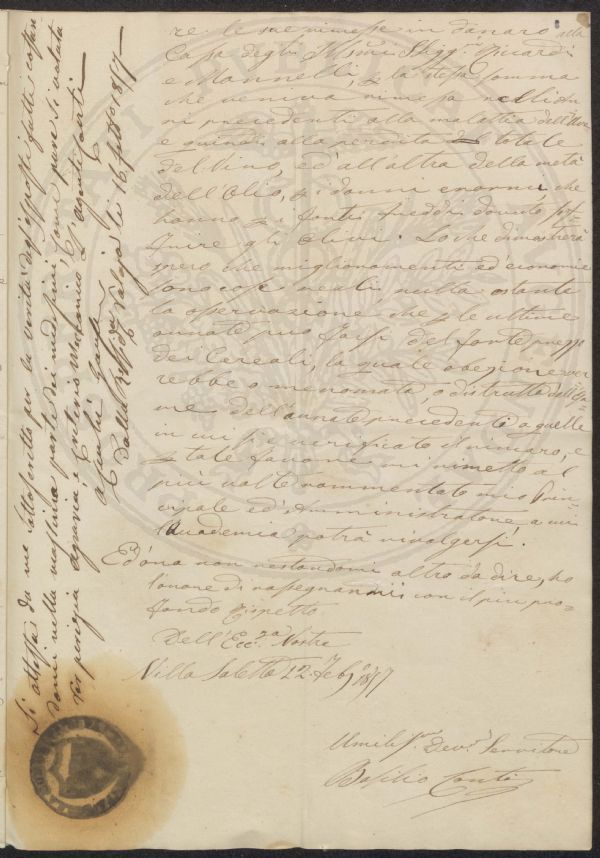 re le sue rimesse in danaro alla
Casa degli Ill:mi Sigg:ri Ricardi
e Mannelli, la stessa somma
che veniva rimessa negli an
ni precedenti alla malattia dell'Uve
e quindi alla perdita totale
del Vino, ed all'altra della metà
dell'Olio, i danni enormi, che
hanno i forti freddi dovuto sof=
frire gli Olivi. Lo che dimostrerà
spero che miglioramenti ed economie
sono così reali, nulla ostante
la osservazione che le ultime
annate può farsi del forte prezzo
dei Cereali, la quale obezione ver
rebbe o menomata, o distrutta dall'
me dell'annate precedenti a quelle
in cui si è verificato il rincaro, e
tale mi rimetto al
più volte rammentato mio Prin=
cipale ed Amministratore, a cui
l'Accademia potrà rivolgersi.
Ed ora non restandomi altro da dire, ho
l'onore di rassegnarmi con il più pro=
fondo rispetto
Dell'Ecc:za Vostra
Villa Saletta 12. Feb: 1857
Umiliss:mo Dev: Servitore
Basilio Conti
Si attesta da me sottoscritto per la verità degl'esposti fatti costan
domi nella massima parte dei medesimi, come pure di notata
perizia agraria e Antonio Agente Conti
Dalla di Palaja li 16 febb: 1857